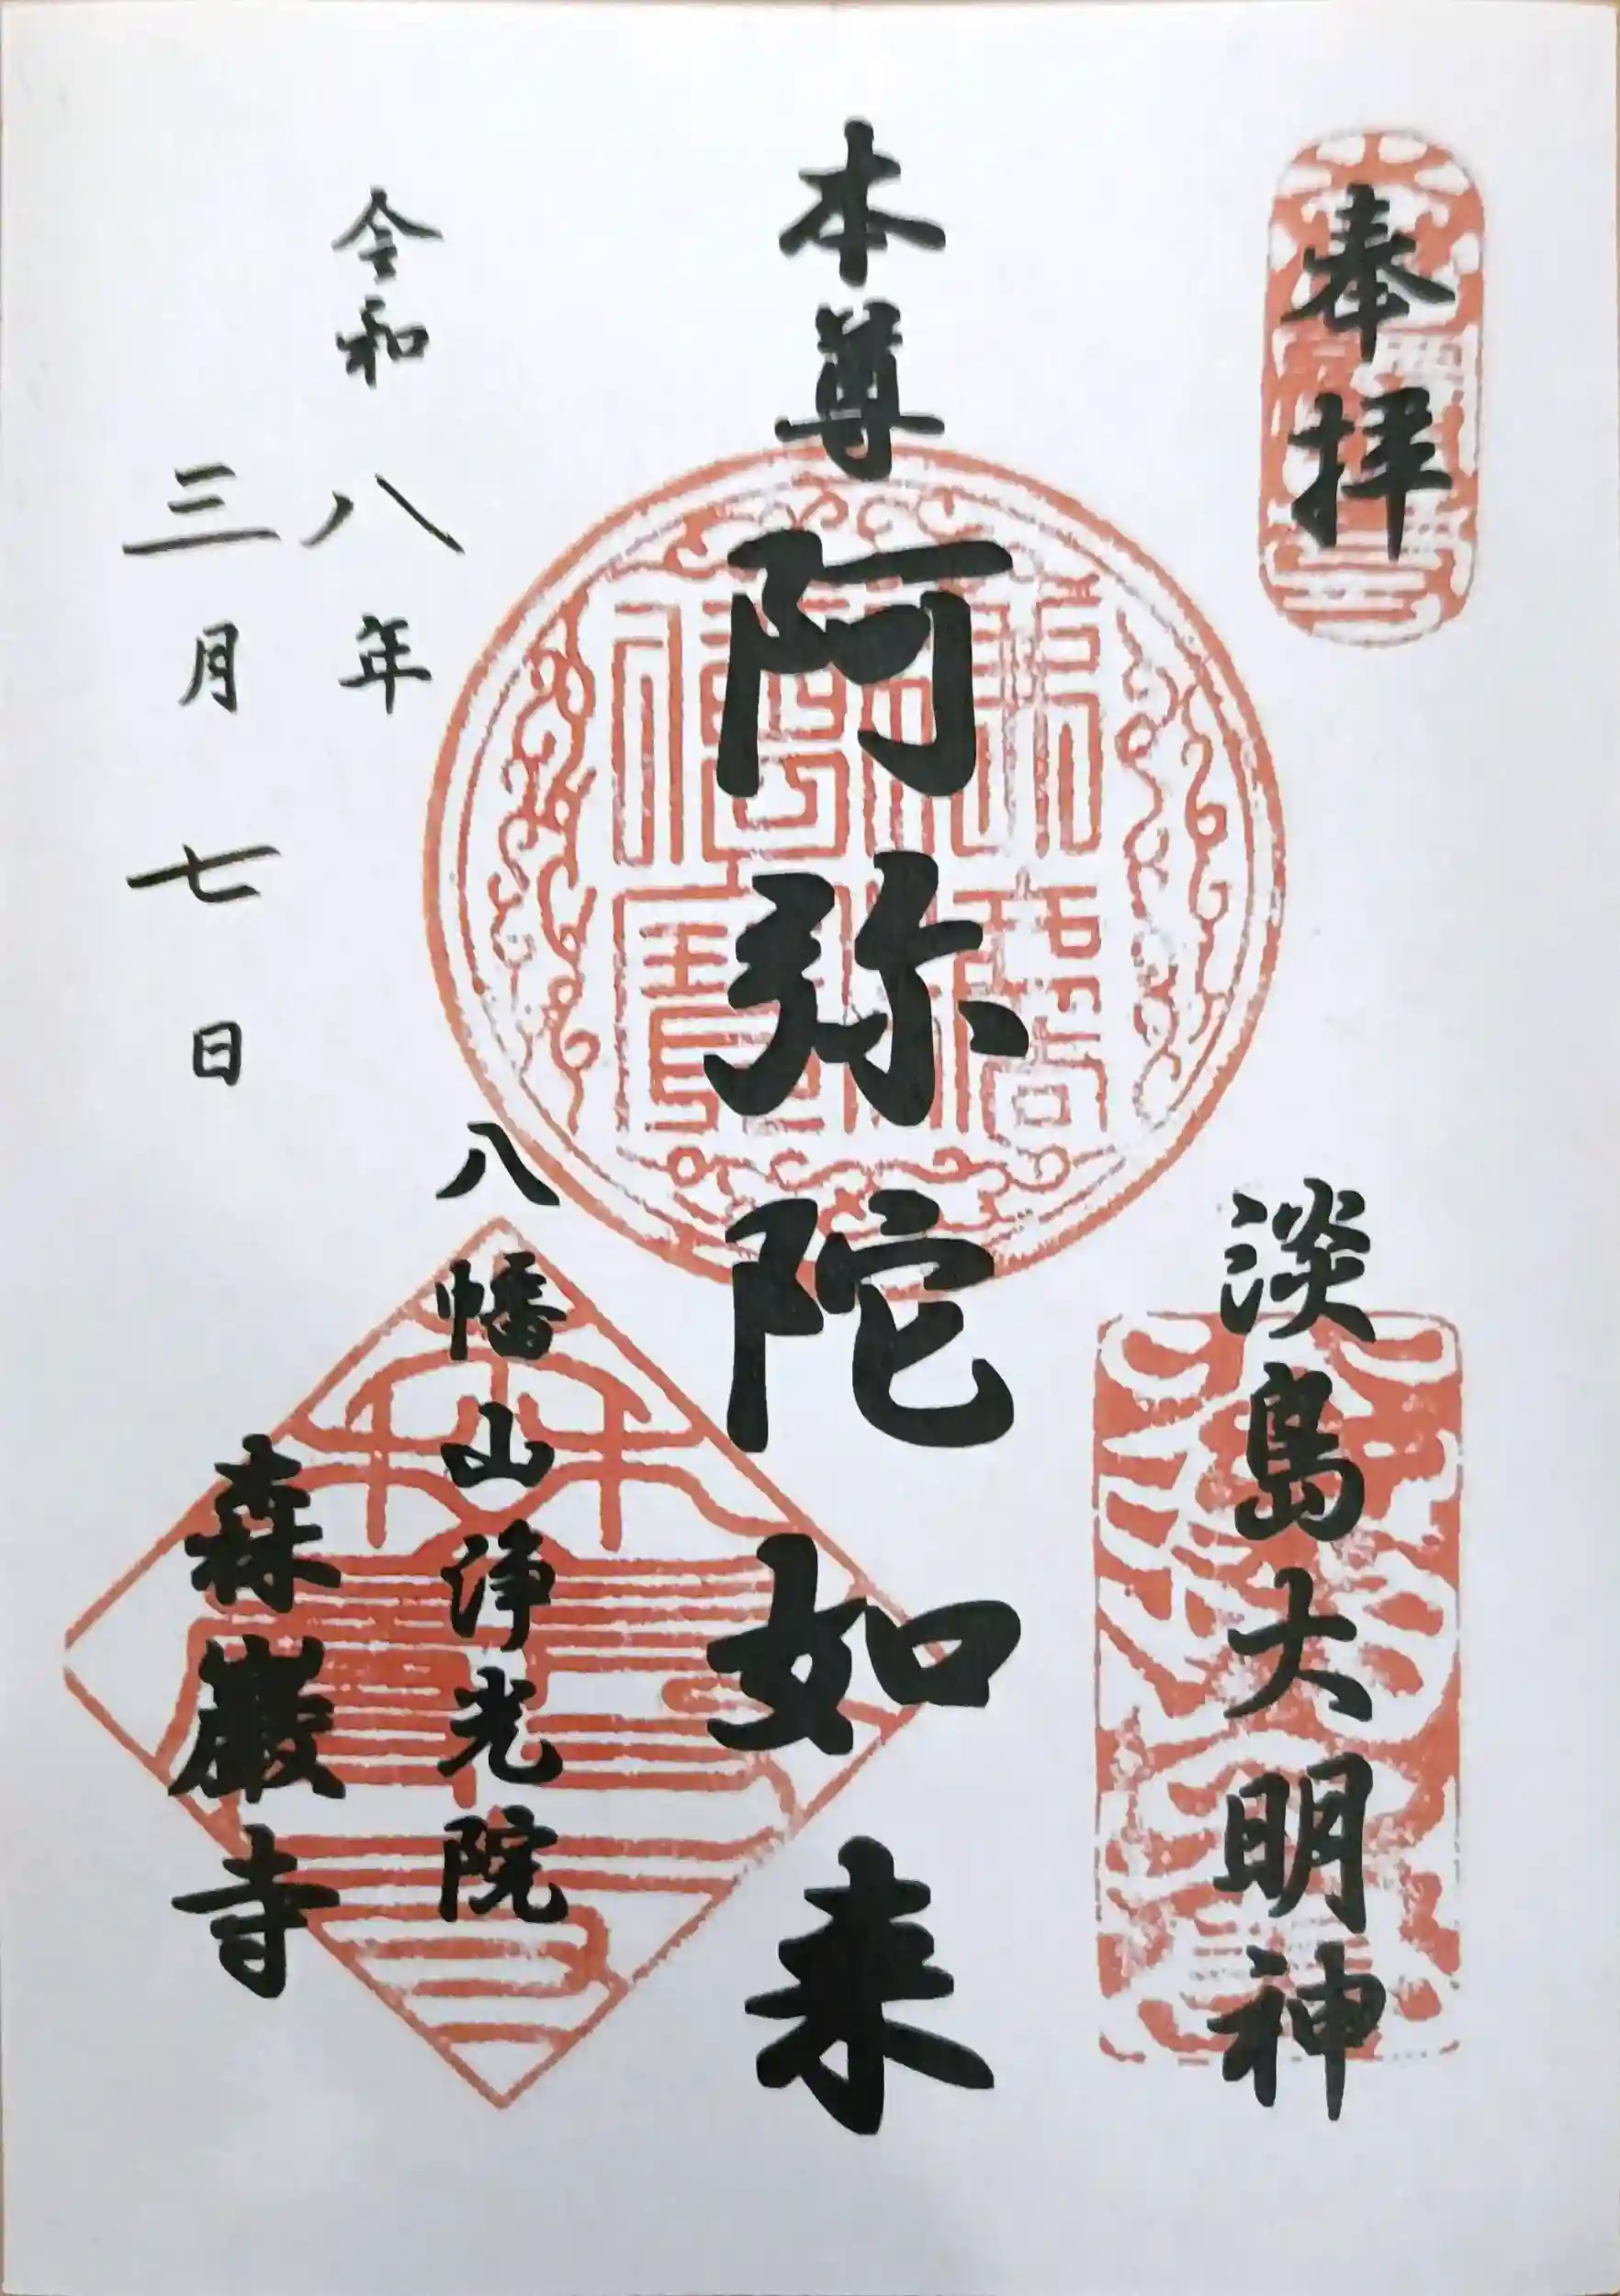 奉拝
淡島大明神
本尊
阿弥陀如来
令和八年
三月七日
八幡山浄光院
森巌寺